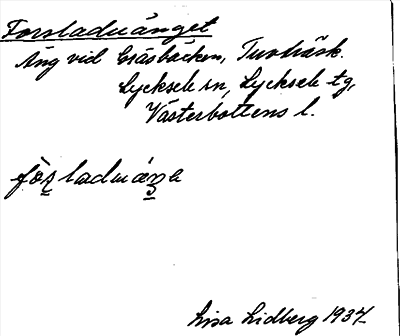 Forsladuänget
Äng vid Gräsbäcken, Tuvträsk.
Lycksele sn, Lycksele tg,
Västerbottens l.
Lisa Lidberg 1937